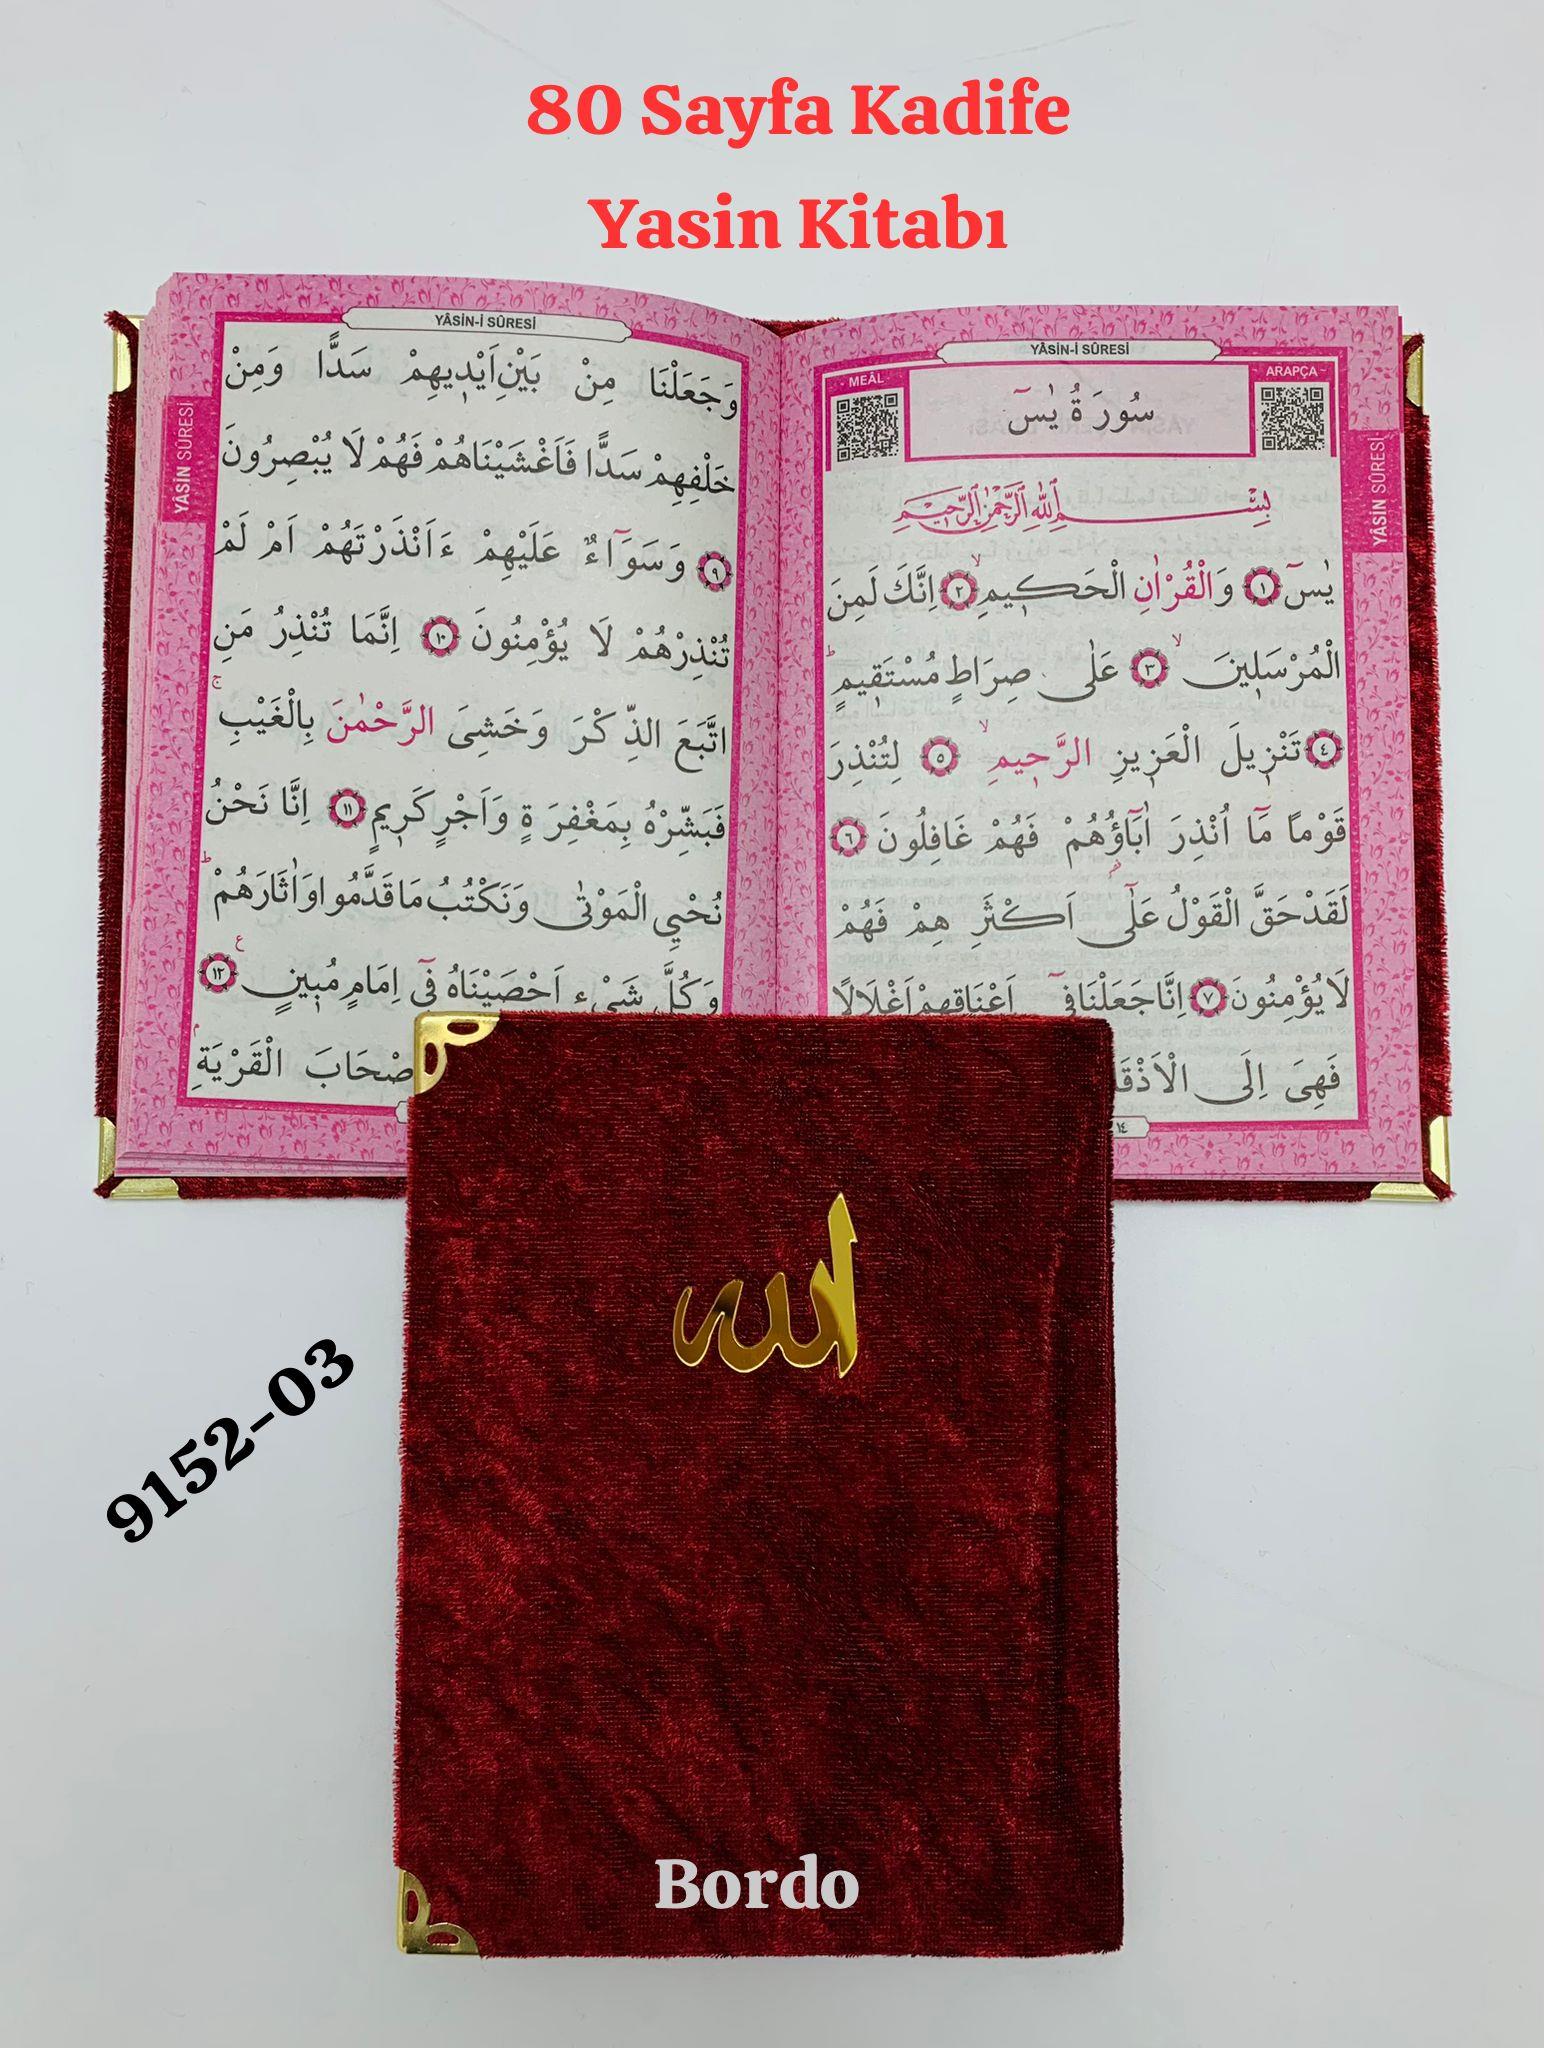 80 Sayfa Kadife
Yasin Kitabı
YÂSİN-İ SÛRESİ
MEÂL
ARAPÇA
سُورَةُ يٰسٓ
بِسْمِ اللّٰهِ الرَّحْمٰنِ الرَّحِيمِ
يٰسٓ ١ وَالْقُرْاٰنِ الْحَكِيمِ ٢ اِنَّكَ لَمِنَ
الْمُرْسَلِينَ ٣ عَلٰى صِرَاطٍ مُسْتَقِيمٍ
٤ تَنْزِيلَ الْعَزِيزِ الرَّحِيمِ ٥ لِتُنْذِرَ
قَوْمًا مَٓا اُنْذِرَ اٰبَٓاؤُ۬هُمْ فَهُمْ غَافِلُونَ ٦
لَقَدْ حَقَّ الْقَوْلُ عَلٰٓى اَكْثَرِ هِمْ فَهُمْ
لَا يُؤْمِنُونَ ٧ اِنَّا جَعَلْنَا فِٓي اَعْنَاقِهِمْ اَغْلَالًا
فَهِيَ اِلَى الْاَذْقَا
١٤
YÂSİN SÛRESİ
YÂSİN-İ SÛRESİ
وَجَعَلْنَا مِنْ بَيْنِ اَيْدِيهِمْ سَدًّا وَمِنْ
خَلْفِهِمْ سَدًّا فَاَغْشَيْنَاهُمْ فَهُمْ لَا يُبْصِرُونَ
٩ وَسَوَٓاءٌ عَلَيْهِمْ ءَاَنْذَرْتَهُمْ اَمْ لَمْ
تُنْذِرْهُمْ لَا يُؤْمِنُونَ ١٠ اِنَّمَا تُنْذِرُ مَنِ
اتَّبَعَ الذِّكْرَ وَخَشِيَ الرَّحْمٰنَ بِالْغَيْبِ
فَبَشِّرْهُ بِمَغْفِرَةٍ وَاَجْرٍ كَرِيمٍ ١١ اِنَّا نَحْنُ
نُحْيِي الْمَوْتٰى وَنَكْتُبُ مَا قَدَّمُوا وَاٰثَارَهُمْ
وَكُلَّ شَيْءٍ اَحْصَيْنَاهُ فِٓي اِمَامٍ مُبِينٍ ١٢
صْحَابَ الْقَرْيَةِ
YÂSİN SÛRESİ
الله
9152-03
Bordo